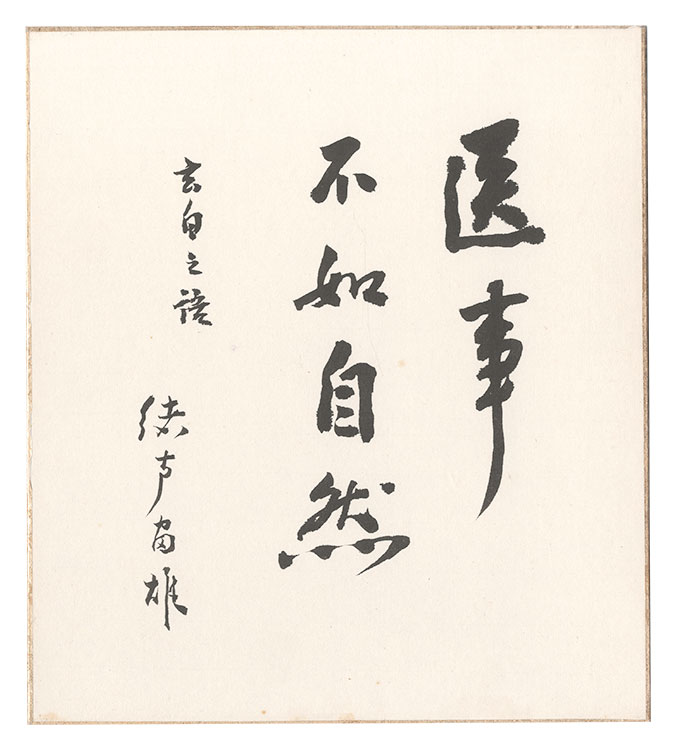 医事
不如自然
玄白之語
緒方富雄